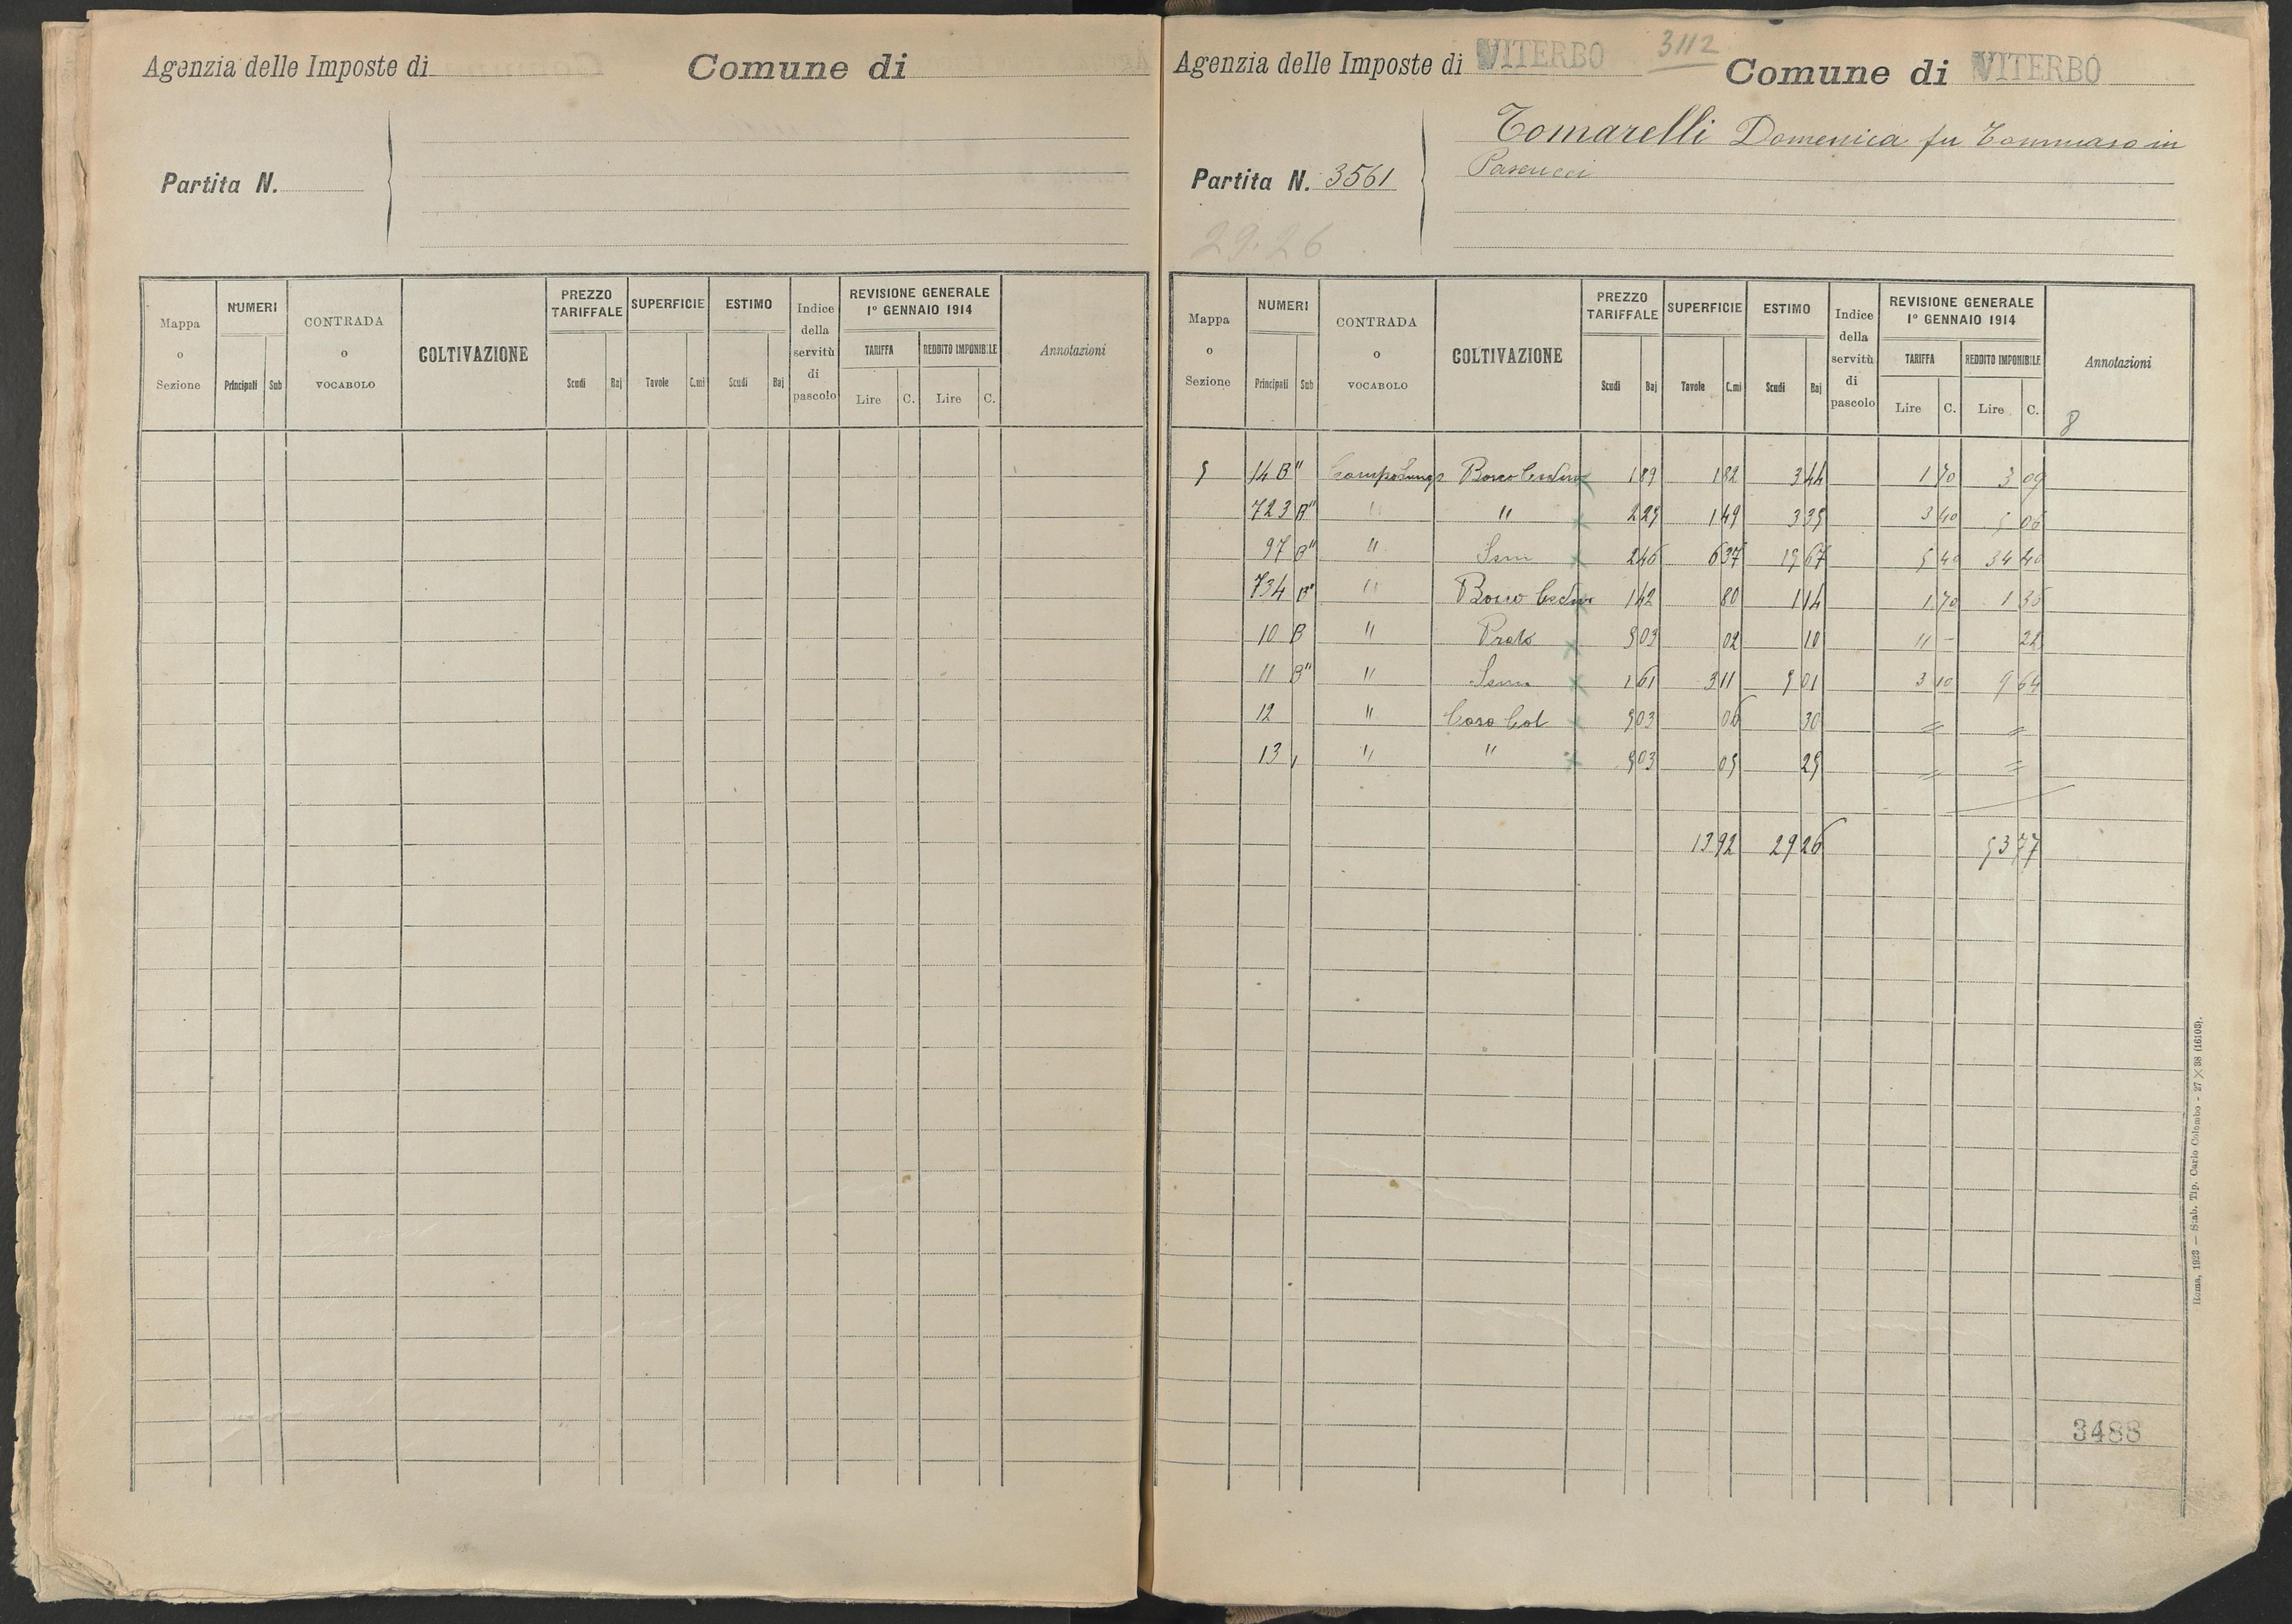 Agenzia delle Imposte di
Comune di
Partita N.
Mappa o Sezione
NUMERI
Principali Sub
CONTRADA o VOCABOLO
COLTIVAZIONE
PREZZO TARIFFALE
Scudi Baj
SUPERFICIE
Tavole C.mi
ESTIMO
Scudi Baj
Indice della servitù di pascolo
REVISIONE GENERALE
1° GENNAIO 1914
TARIFFA
Lire C.
REDDITO IMPONIBILE
Lire C.
Annotazioni
Agenzia delle Imposte di VITERBO
3112
Comune di VITERBO
Tomarelli Domenica fu Tommaso in
Pascucci
Partita N. 3561
29.26
Mappa o Sezione
NUMERI
Principali Sub
CONTRADA o VOCABOLO
COLTIVAZIONE
PREZZO TARIFFALE
Scudi Baj
SUPERFICIE
Tavole C.mi
ESTIMO
Scudi Baj
Indice della servitù di pascolo
REVISIONE GENERALE
1° GENNAIO 1914
TARIFFA
Lire C.
REDDITO IMPONIBILE
Lire C.
Annotazioni
8
5 14 B" Campolungo Bosco Ceduo 1 89 1 82 3 44 1 70 3 09
723 B" " " 2 25 1 49 3 35 3 40 5 06
97 B" " Sem 2 46 6 37 15 67 5 40 34 40
734 B" " Bosco Ceduo 1 42 80 1 14 1 70 1 36
10 B " Prato 5 03 02 10 11 - 22
11 B" " Sem 1 61 3 11 5 01 3 10 9 64
12 " Casa Col 5 03 06 30 = =
13 " " 5 03 05 25 = =
13 92 29 26 53 77
3488
Roma, 1923 — Stab. Tip. Carlo Colombo - 27 × 38 (16103).